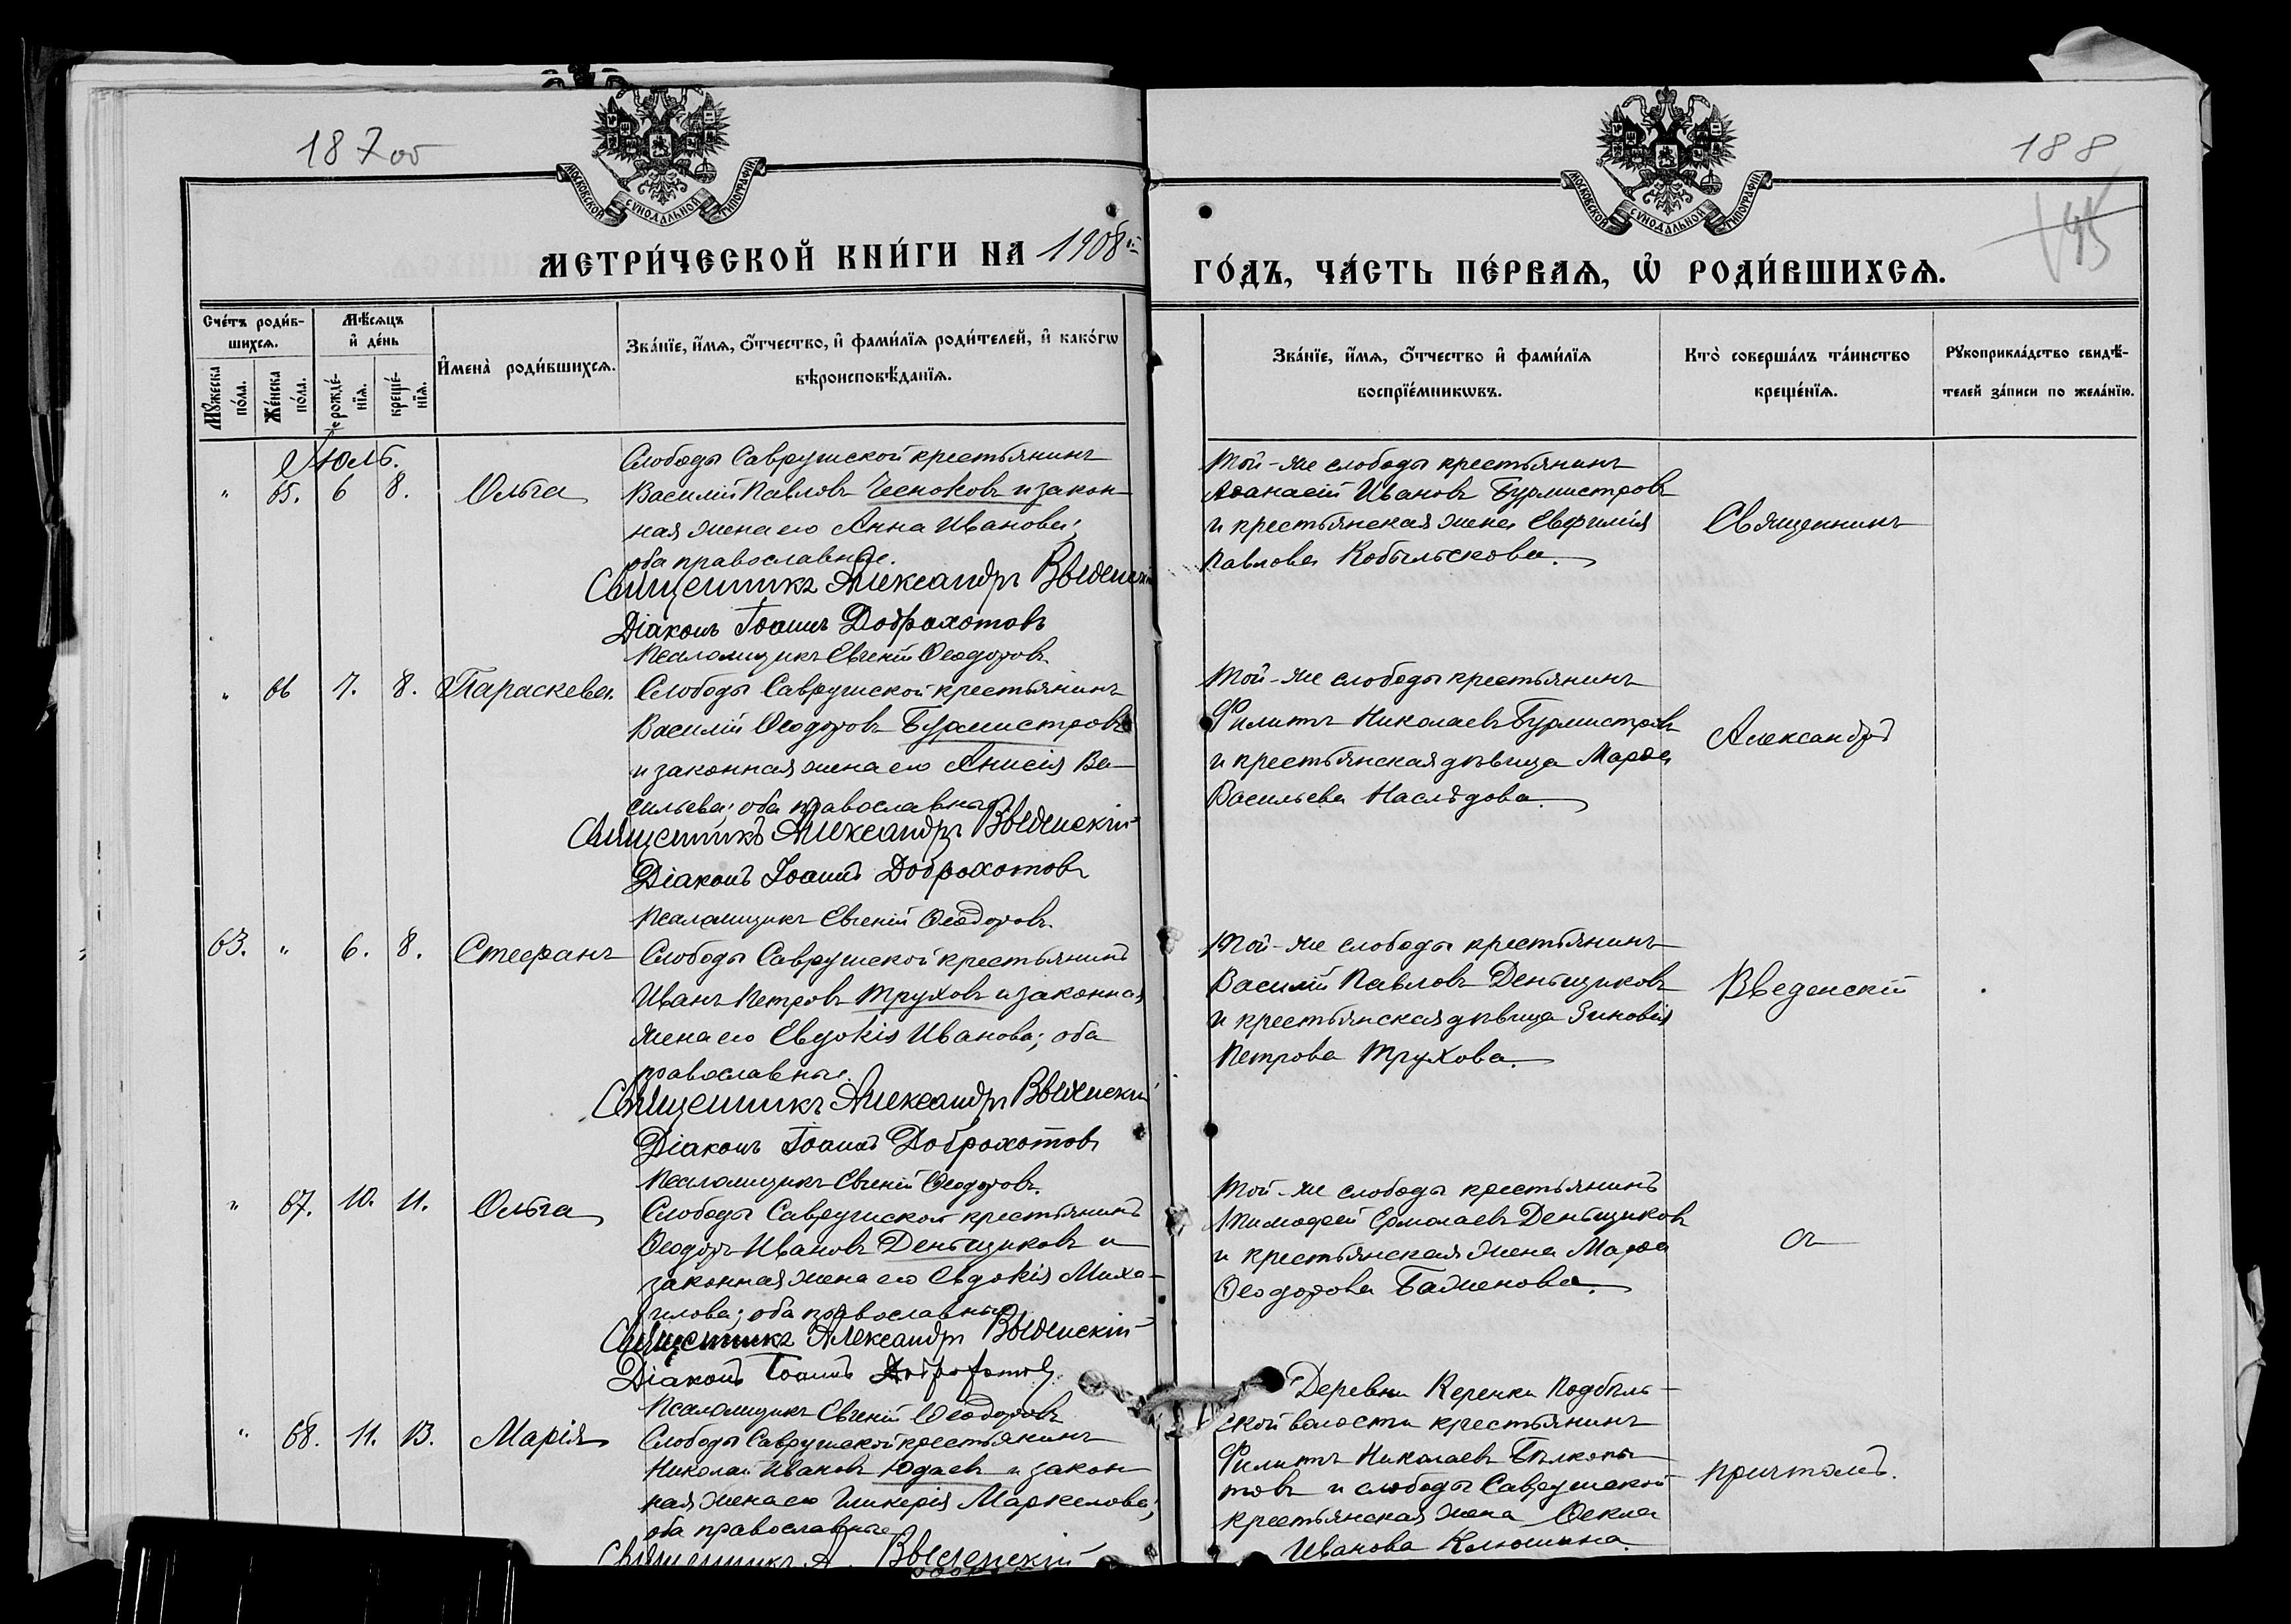 187 об
188
195
МОСКОВСКОЙ СѴНОДАЛЬНОЙ ТИПОГРАФІИ
МОСКОВСКОЙ СѴНОДАЛЬНОЙ ТИПОГРАФІИ
МЕТРИ́ЧЕСКОЙ КНИ́ГИ НА 1908й
ГО́ДЪ, ЧА́СТЬ ПЕ́РВАѦ, Ѡ҆ РОДИ́ВШИХСѦ.
Сче́тъ роди́в-
шихсѧ.
Мꙋ́жеска
по́ла.
Же́нска
по́ла.
Мѣ́сѧцъ
и҆ де́нь
рожде́-
нїѧ.
креще́-
нїѧ.
И҆мена̀ роди́вшихсѧ.
Зва́нїе, и҆́мѧ, ѻ҆́тчество, и҆ фами́лїѧ роди́телей, и҆ како́гѡ
вѣроисповѣ́данїѧ.
Зва́нїе, и҆́мѧ, ѻ҆́тчество и҆ фами́лїѧ
воспрїе́мникѡвъ.
Кто̀ соверша́лъ та́инство
креще́нїѧ.
Рꙋкоприкла́дство свидѣ́-
телей за́писи по жела́нїю.
Июль.
" 65. 6 8. Ольга
Слободы Саврушской крестьянинъ
Василій Павловъ Чесноковъ и закон-
ная жена его Анна Иванова;
оба православные.
Священникъ Александръ Введенскій
Діаконъ Іоаннъ Доброхотовъ
Псаломщикъ Евгеній Ѳеодоровъ
Той-же слободы крестьянинъ
Аѳанасій Ивановъ Бурмистровъ
и крестьянская жена Евфимія
Павлова Кобыльскова.
Священникъ
" 66 7. 8. Параскева
Слободы Саврушской крестьянинъ
Василій Ѳеодоровъ Бурмистровъ
и законная жена его Анисія Ва-
сильева; оба православные
Священникъ Александръ Введенскій
Діаконъ Іоаннъ Доброхотовъ
Псаломщикъ Евгеній Ѳеодоровъ
Той-же слободы крестьянинъ
Филиппъ Николаевъ Бурмистровъ
и крестьянская дѣвица Марѳа
Васильева Наслѣдова.
Александръ
63. " 6. 8. Стефанъ
Слободы Саврушской крестьянинъ
Иванъ Петровъ Труховъ и законная
жена его Евдокія Иванова; оба
православные.
Священникъ Александръ Введенскій
Діаконъ Іоаннъ Доброхотовъ
Псаломщикъ Евгеній Ѳеодоровъ.
Той-же слободы крестьянинъ
Василій Павловъ Деньщиковъ
и крестьянская дѣвица Зиновія
Петрова Трухова.
Введенскій
" 67. 10. 11. Ольга
Слободы Саврушской крестьянинъ
Ѳеодоръ Ивановъ Деньщиковъ и
законная жена его Евдокія Миха-
илова; оба православные
Священникъ Александръ Введенскій
Діаконъ Іоаннъ Доброхотовъ
Псаломщикъ Евгеній Ѳеодоровъ
Той-же слободы крестьянинъ
Тимофей Ермолаевъ Деньщиковъ
и крестьянская жена Марѳа
Ѳеодорова Баженова.
съ
" 68. 11. 13. Марія
Слободы Саврушской крестьянинъ
Николай Ивановъ Юдаевъ и закон-
ная жена его Гликерія Маркелова;
оба православные
Священникъ А. Введенскій
Деревни Керенки Подбѣль-
ской волости крестьянинъ
Филиппъ Николаевъ Бѣлкопы-
товъ и слободы Саврушской
крестьянская жена Ѳекла
Иванова Клюшина.
причтомъ.